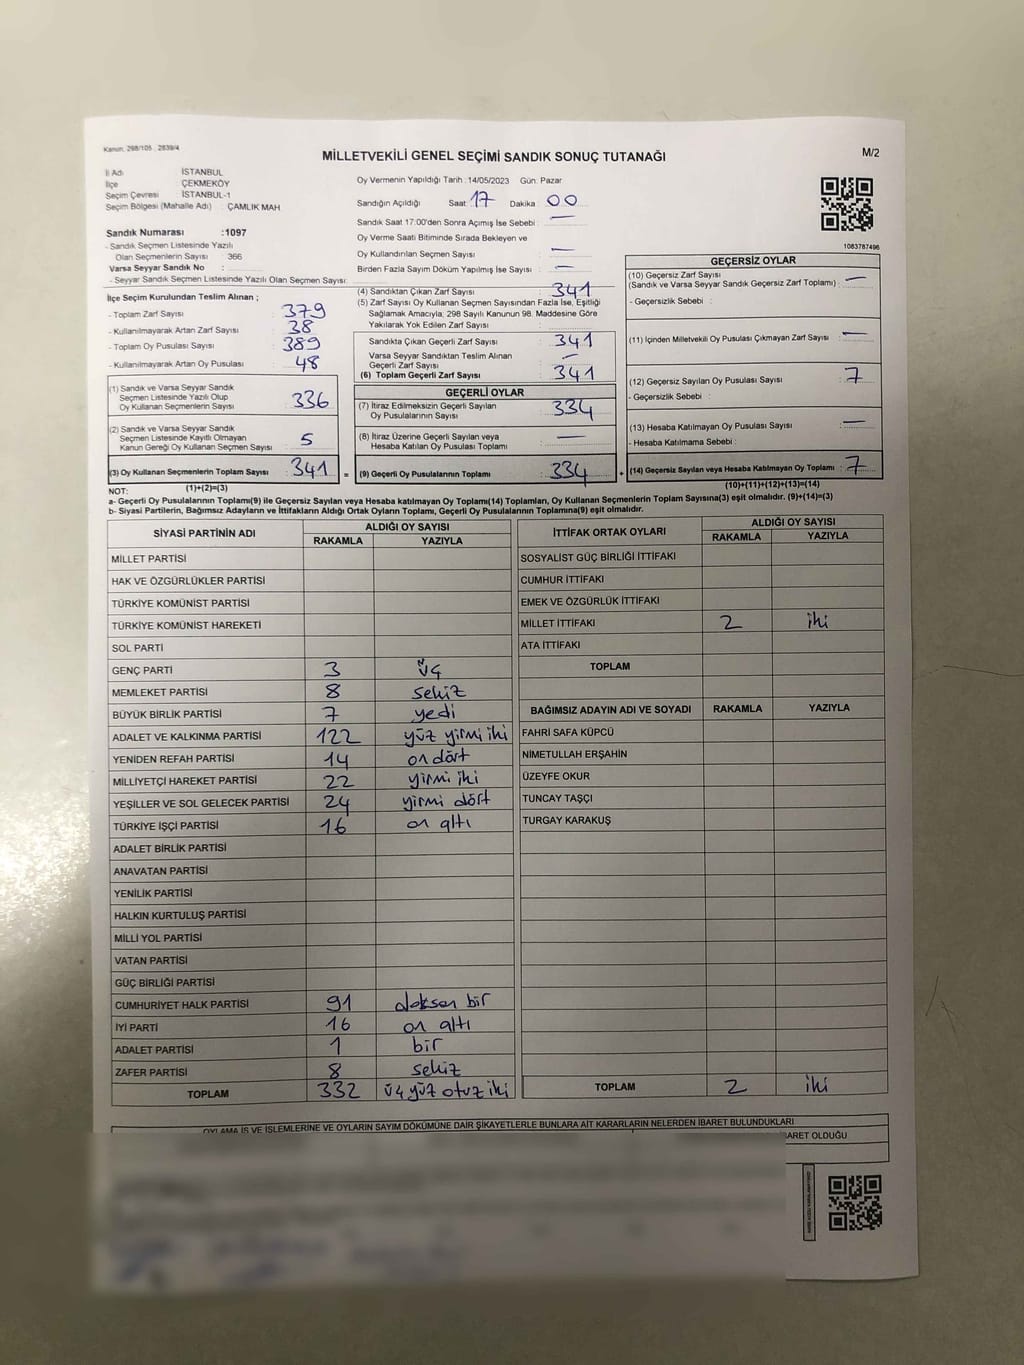 Kanun: 298/105 , 2839/4
MİLLETVEKİLİ GENEL SEÇİMİ SANDIK SONUÇ TUTANAĞI
M/2
İl Adı : İSTANBUL
İlçe : ÇEKMEKÖY
Seçim Çevresi : İSTANBUL-1
Seçim Bölgesi (Mahalle Adı) : ÇAMLIK MAH
Sandık Numarası :1097
- Sandık Seçmen Listesinde Yazılı
Olan Seçmenlerin Sayısı : 366
Varsa Seyyar Sandık No :
- Seyyar Sandık Seçmen Listesinde Yazılı Olan Seçmen Sayısı:
Oy Vermenin Yapıldığı Tarih : 14/05/2023 Gün: Pazar
Sandığın Açıldığı Saat : 17 Dakika : 00
Sandık Saat 17:00'den Sonra Açımış İse Sebebi : —
Oy Verme Saati Bitiminde Sırada Bekleyen ve
Oy Kullandırılan Seçmen Sayısı : —
Birden Fazla Sayım Döküm Yapılmış İse Sayısı : —
1083787496
İlçe Seçim Kurulundan Teslim Alınan ;
- Toplam Zarf Sayısı : 379
- Kullanılmayarak Artan Zarf Sayısı : 38
- Toplam Oy Pusulası Sayısı : 389
- Kullanılmayarak Artan Oy Pusulası : 48
(1) Sandık ve Varsa Seyyar Sandık
Seçmen Listesinde Yazılı Olup
Oy Kullanan Seçmenlerin Sayısı : 336
(2) Sandık ve Varsa Seyyar Sandık
Seçmen Listesinde Kayıtlı Olmayan
Kanun Gereği Oy Kullanan Seçmen Sayısı : 5
(3) Oy Kullanan Seçmenlerin Toplam Sayısı : 341
(1)+(2)=(3)
(4) Sandıktan Çıkan Zarf Sayısı : 341
(5) Zarf Sayısı Oy Kullanan Seçmen Sayısından Fazla İse, Eşitliği
Sağlamak Amacıyla; 298 Sayılı Kanunun 98. Maddesine Göre
Yakılarak Yok Edilen Zarf Sayısı :
Sandıkta Çıkan Geçerli Zarf Sayısı : 341
Varsa Seyyar Sandıktan Teslim Alınan
Geçerli Zarf Sayısı : —
(6) Toplam Geçerli Zarf Sayısı : 341
GEÇERLİ OYLAR
(7) İtiraz Edilmeksizin Geçerli Sayılan
Oy Pusulalarının Sayısı : 334
(8) İtiraz Üzerine Geçerli Sayılan veya
Hesaba Katılan Oy Pusulası Toplamı : —
= (9) Geçerli Oy Pusulalarının Toplamı : 334
GEÇERSİZ OYLAR
(10) Geçersiz Zarf Sayısı
(Sandık ve Varsa Seyyar Sandık Geçersiz Zarf Toplamı) : —
- Geçersizlik Sebebi :
(11) İçinden Milletvekili Oy Pusulası Çıkmayan Zarf Sayısı : —
(12) Geçersiz Sayılan Oy Pusulası Sayısı : 7
- Geçersizlik Sebebi :
(13) Hesaba Katılmayan Oy Pusulası Sayısı : —
- Hesaba Katılmama Sebebi :
+ (14) Geçersiz Sayılan veya Hesaba Katılmayan Oy Toplamı : 7
(10)+(11)+(12)+(13)=(14)
NOT:
a- Geçerli Oy Pusulalarının Toplamı(9) ile Geçersiz Sayılan veya Hesaba katılmayan Oy Toplamı(14) Toplamları, Oy Kullanan Seçmenlerin Toplam Sayısına(3) eşit olmalıdır. (9)+(14)=(3)
b- Siyasi Partilerin, Bağımsız Adayların ve İttifakların Aldığı Ortak Oyların Toplamı, Geçerli Oy Pusulalarının Toplamına(9) eşit olmalıdır.
SİYASİ PARTİNİN ADI ALDIĞI OY SAYISI
RAKAMLA YAZIYLA
MİLLET PARTİSİ
HAK VE ÖZGÜRLÜKLER PARTİSİ
TÜRKİYE KOMÜNİST PARTİSİ
TÜRKİYE KOMÜNİST HAREKETİ
SOL PARTİ
GENÇ PARTİ 3 üç
MEMLEKET PARTİSİ 8 sekiz
BÜYÜK BİRLİK PARTİSİ 7 yedi
ADALET VE KALKINMA PARTİSİ 122 yüz yirmi iki
YENİDEN REFAH PARTİSİ 14 on dört
MİLLİYETÇİ HAREKET PARTİSİ 22 yirmi iki
YEŞİLLER VE SOL GELECEK PARTİSİ 24 yirmi dört
TÜRKİYE İŞÇİ PARTİSİ 16 on altı
ADALET BİRLİK PARTİSİ
ANAVATAN PARTİSİ
YENİLİK PARTİSİ
HALKIN KURTULUŞ PARTİSİ
MİLLİ YOL PARTİSİ
VATAN PARTİSİ
GÜÇ BİRLİĞİ PARTİSİ
CUMHURİYET HALK PARTİSİ 91 doksan bir
İYİ PARTİ 16 on altı
ADALET PARTİSİ 1 bir
ZAFER PARTİSİ 8 sekiz
TOPLAM 332 üç yüz otuz iki
İTTİFAK ORTAK OYLARI ALDIĞI OY SAYISI
RAKAMLA YAZIYLA
SOSYALİST GÜÇ BİRLİĞİ İTTİFAKI
CUMHUR İTTİFAKI
EMEK VE ÖZGÜRLÜK İTTİFAKI
MİLLET İTTİFAKI 2 iki
ATA İTTİFAKI
TOPLAM
BAĞIMSIZ ADAYIN ADI VE SOYADI RAKAMLA YAZIYLA
FAHRİ SAFA KÜPCÜ
NİMETULLAH ERŞAHİN
ÜZEYFE OKUR
TUNCAY TAŞÇI
TURGAY KARAKUŞ
TOPLAM 2 iki
OYLAMA İŞ VE İŞLEMLERİNE VE OYLARIN SAYIM DÖKÜMÜNE DAİR ŞİKAYETLERLE BUNLARA AİT KARARLARIN NELERDEN İBARET BULUNDUKLARI
İBARET OLDUĞU